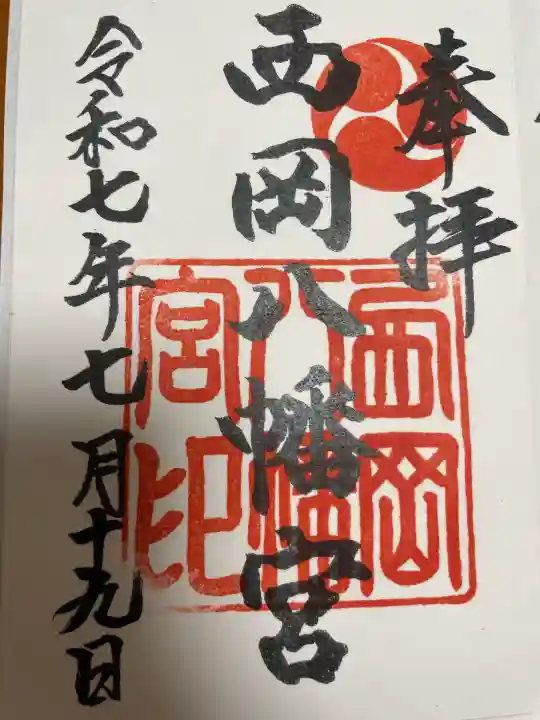 奉拝
西岡八幡宮
西岡
八幡
宮印
令和七年七月十九日